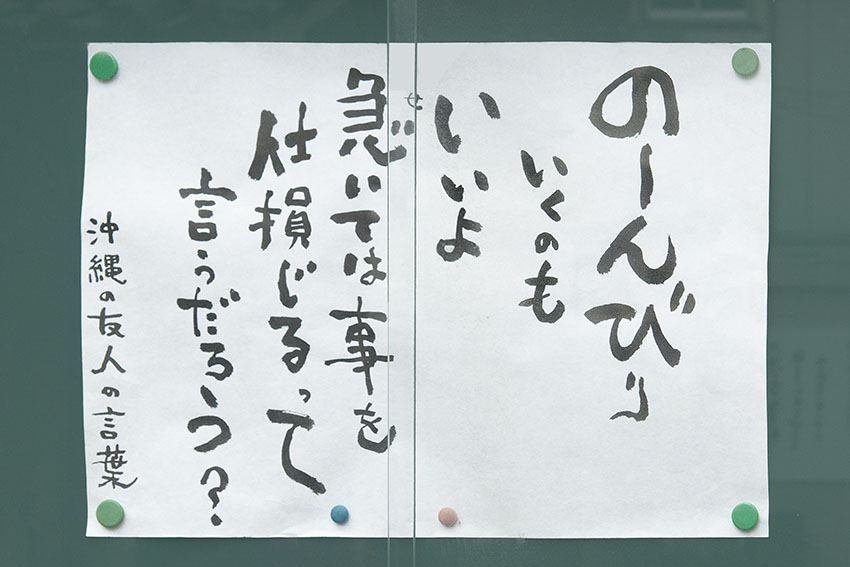 のーんびり
いくのも
いいよ
急いては事を
せ
仕損じるって
言うだろう?
沖縄の友人の言葉